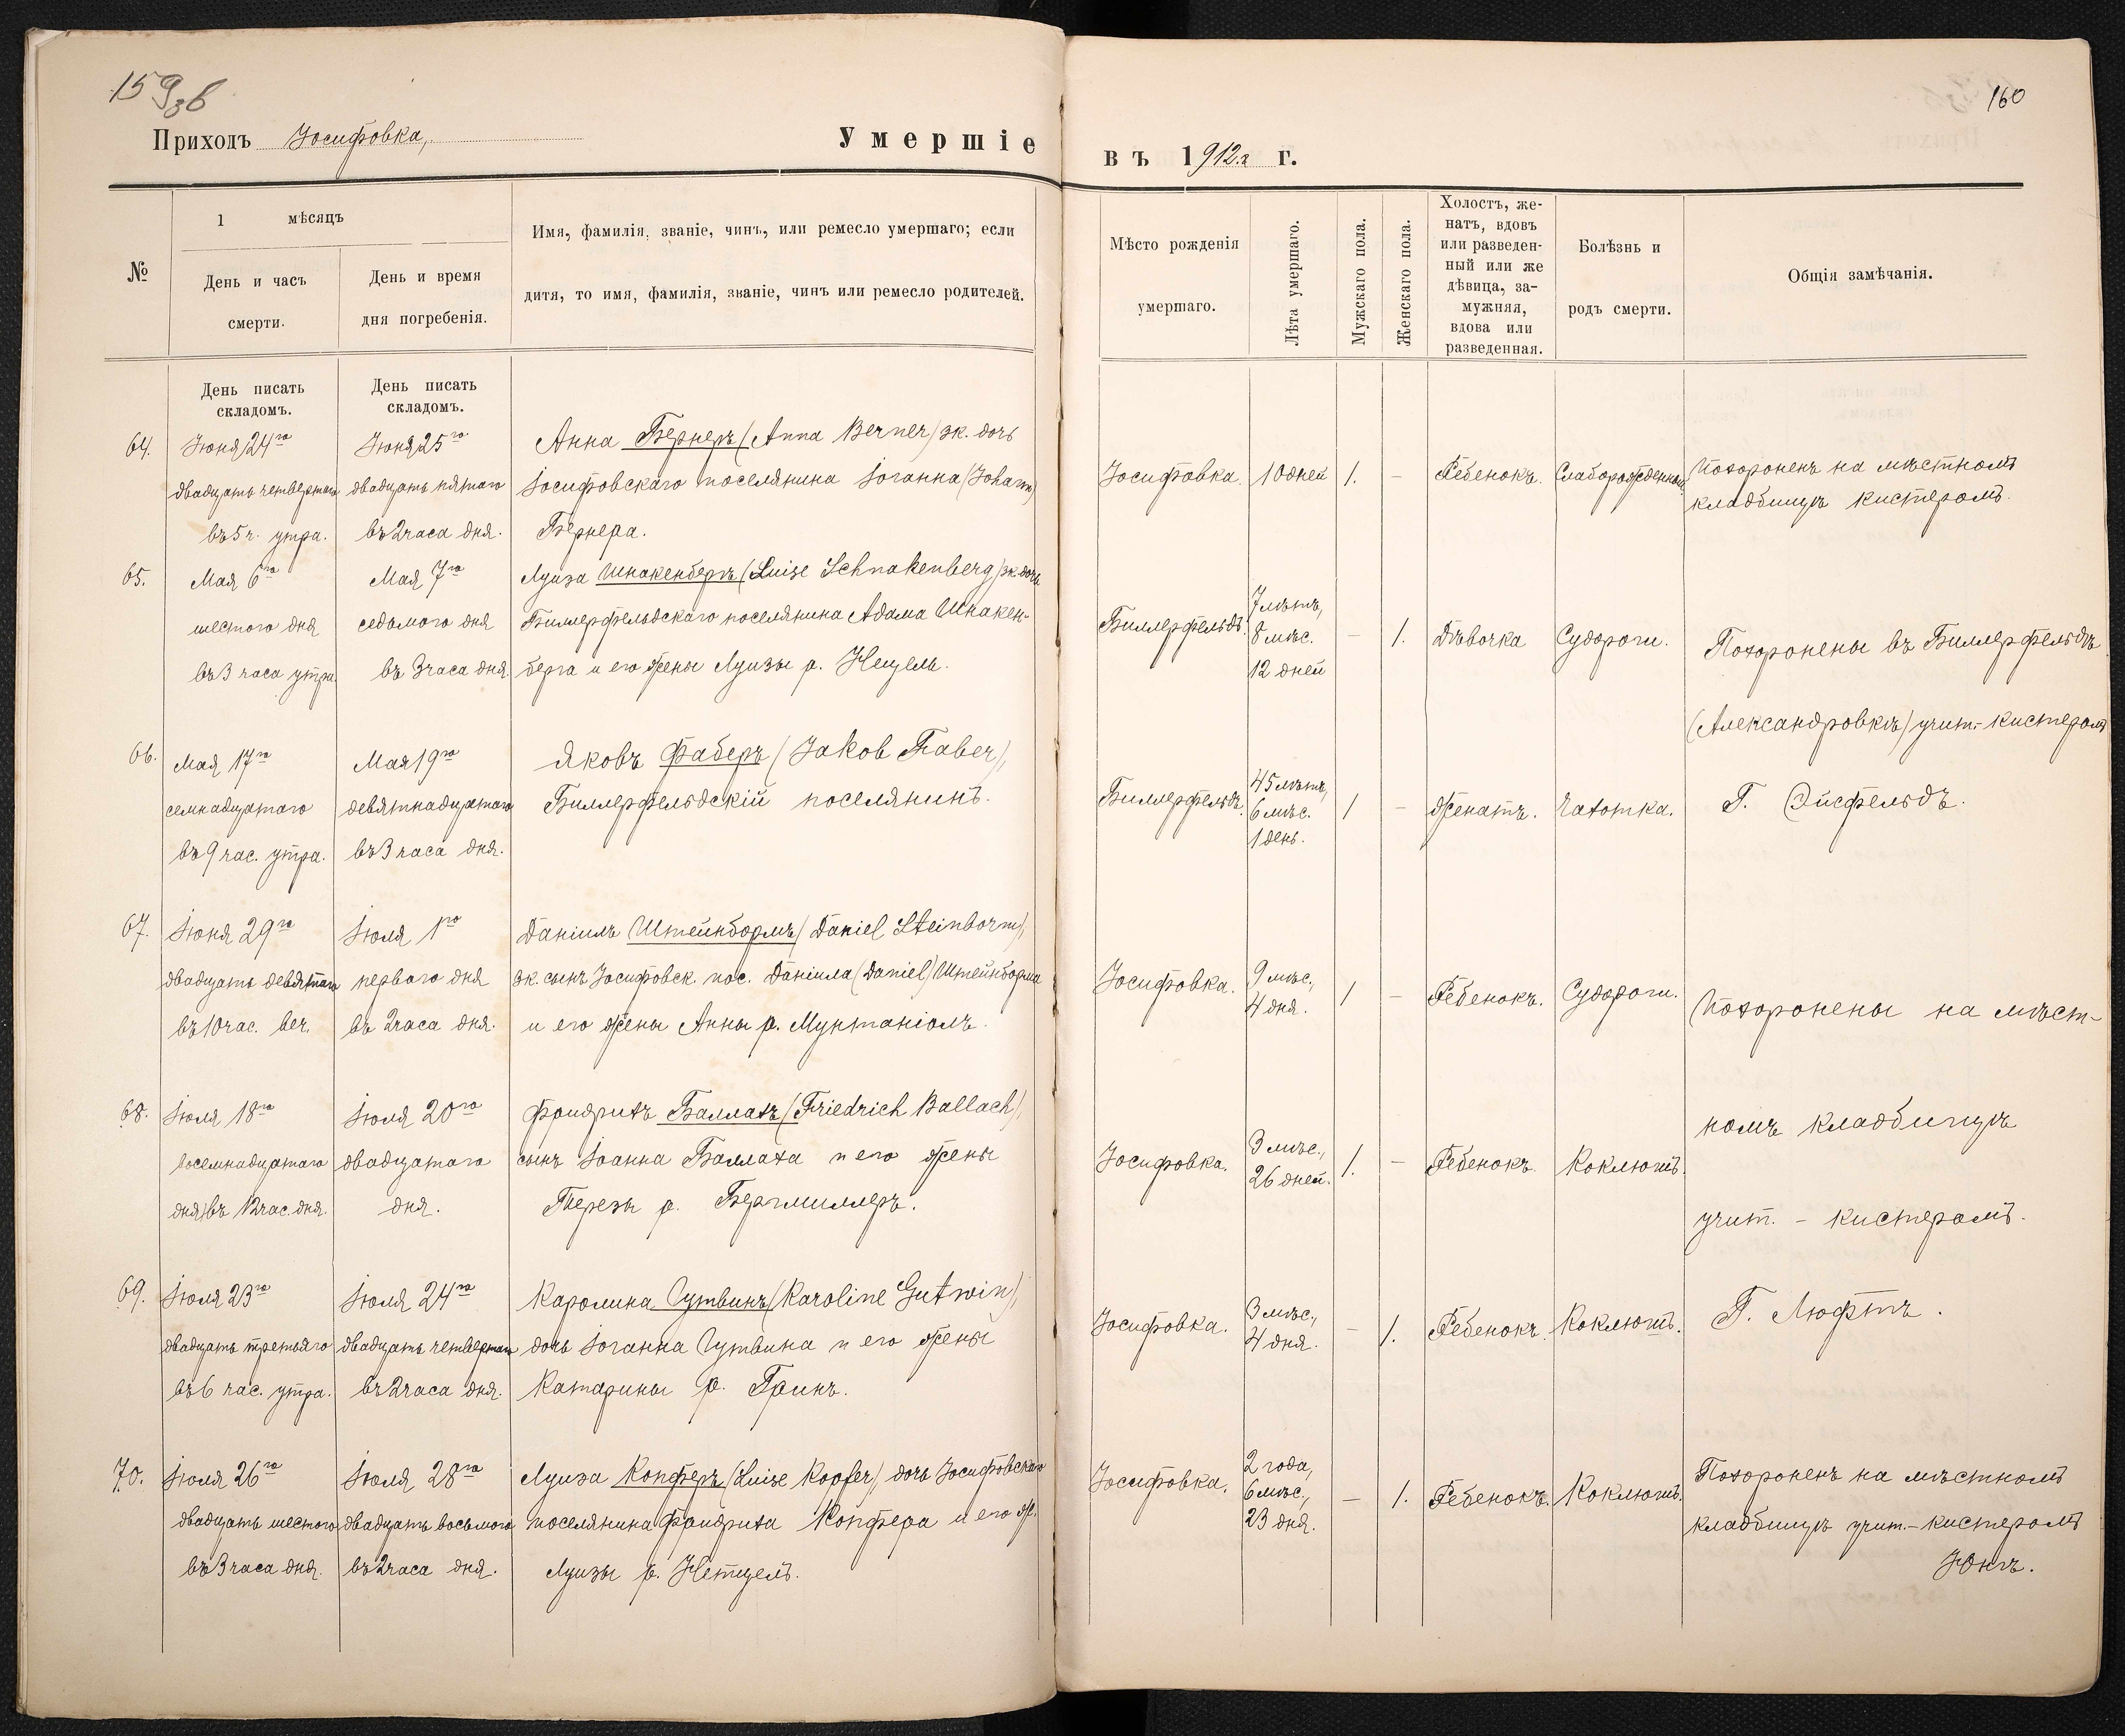 159зв
160
Приходъ Іосифовка, Умершіе въ 1912.г г.
№
1 мѣсяцъ
День и часъ
смерти.
День и время
дня погребенія.
Имя, фамилія, званіе, чинъ, или ремесло умершаго; если
дитя, то имя, фамилія, званіе, чинъ или ремесло родителей.
Мѣсто рожденія
умершаго.
Лѣта умершаго.
Мужскаго пола.
Женскаго пола.
Холостъ, же-
натъ, вдовъ
или разведен-
ный или же
дѣвица, за-
мужняя,
вдова или
разведенная.
Болѣзнь и
родъ смерти.
Общія замѣчанія.
День писать
складомъ.
День писать
складомъ.
64.
Іюня 24го
двадцать четвертаго
въ 5 ч. утра.
Іюня 25го
двадцать пятаго
въ 2 часа дня.
Анна Бернеръ (Anna Berner) зк. дочь
Іосифовскаго поселянина Іоганна (Johann)
Бернера.
Іосифовка.
10 дней
1.
–
Ребенокъ.
Слаборожденный.
Похороненъ на мѣстномъ
кладбищѣ кистеромъ.
65.
Мая 6го
шестого дня
въ 3 часа утра.
Мая 7го
седьмого дня
въ 3 часа дня.
Луиза Шнакенбергъ (Luise Schnakenberg) зк. дочь
Биллерфельдскаго поселянина Адама Шнакен-
берга и его жены Луизы р. Нецель.
Биллерфельдъ.
7 лѣтъ,
8 мѣс.
12 дней
–
1.
Дѣвочка
Судороги.
Похоронены въ Биллерфельдѣ
(Александровкѣ) учит.-кистеромъ
Г. Эйсфельдъ.
66.
Мая 17го
семнадцатаго
въ 9 час. утра.
Мая 19го
девятнадцатаго
въ 3 часа дня.
Яковъ Фаберъ (Jakob Faber),
Биллерфельдскій поселянинъ.
Биллерфельдъ.
45 лѣтъ,
6 мѣс.
1 день.
1
–
Женатъ.
Чахотка.
67.
Іюня 29го
двадцать девятаго
въ 10 час. веч.
Іюля 1го
перваго дня
въ 2 часа дня.
Даніилъ Штейнбормъ (Daniel Steinborm),
зк. сынъ Іосифовск. пос. Даніила (Daniel) Штейнборма
и его жены Анны р. Мунтаніолъ.
Іосифовка.
9 мѣс.,
4 дня.
1
–
Ребенокъ.
Судороги.
Похоронены на мѣст-
номъ кладбищѣ
учит. - кистеромъ.
Г. Люфтъ.
68.
Іюля 18го
восемнадцатаго
дня въ 12 час. дня.
Іюля 20го
двадцатаго
дня.
Фридрихъ Баллахъ (Friedrich Ballach),
сынъ Іоанна Баллаха и его жены
Терезы р. Бергмиллеръ.
Іосифовка.
3 мѣс.,
26 дней.
1.
–
Ребенокъ.
Коклюшъ.
69.
Іюля 23го
двадцать третьяго
въ 6 час. утра.
Іюля 24го
двадцать четвертаго
въ 2 часа дня.
Каролина Гутвинъ (Karoline Gutwin),
дочь Іоганна Гутвина и его жены
Катарины р. Гринъ.
Іосифовка.
3 мѣс.,
4 дня.
–
1.
Ребенокъ.
Коклюшъ.
70.
Іюля 26го
двадцать шестого
въ 3 часа дня.
Іюля 28го
двадцать восьмого
въ 2 часа дня.
Луиза Копферъ (Luise Kopfer), дочь Іосифовскаго
поселянина Фридриха Копфера и его ж.
Луизы р. Нетцель.
Іосифовка.
2 года,
6 мѣс.,
23 дня.
–
1.
Ребенокъ.
Коклюшъ.
Похороненъ на мѣстномъ
кладбищѣ учит.-кистеромъ
Юнгъ.